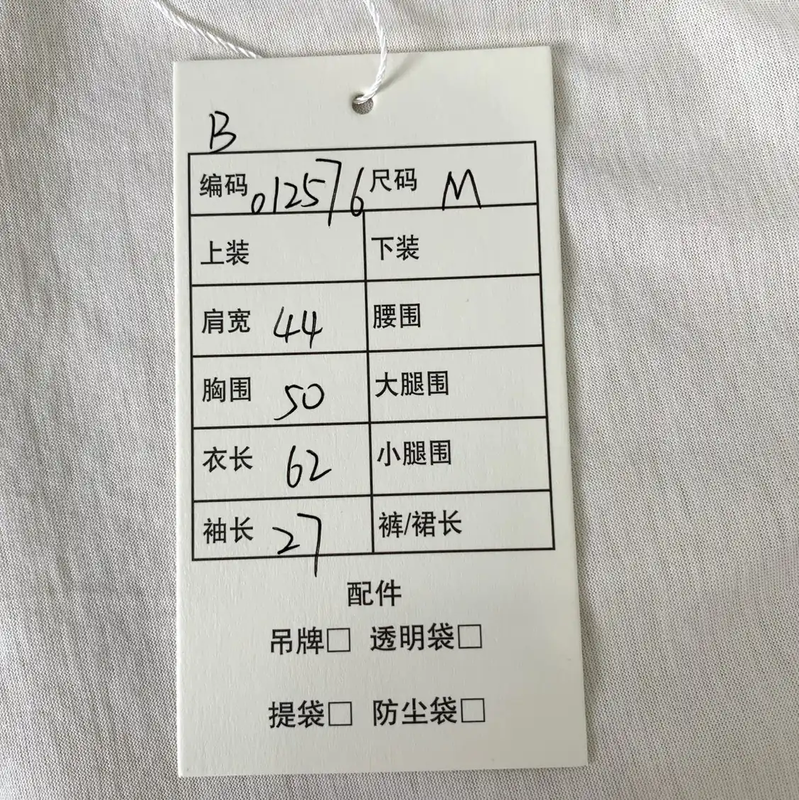 B
编码 012576 尺码 M
上装 下装
肩宽 44 腰围
胸围 50 大腿围
衣长 62 小腿围
袖长 27 裤/裙长
配件
吊牌□ 透明袋□
提袋□ 防尘袋□